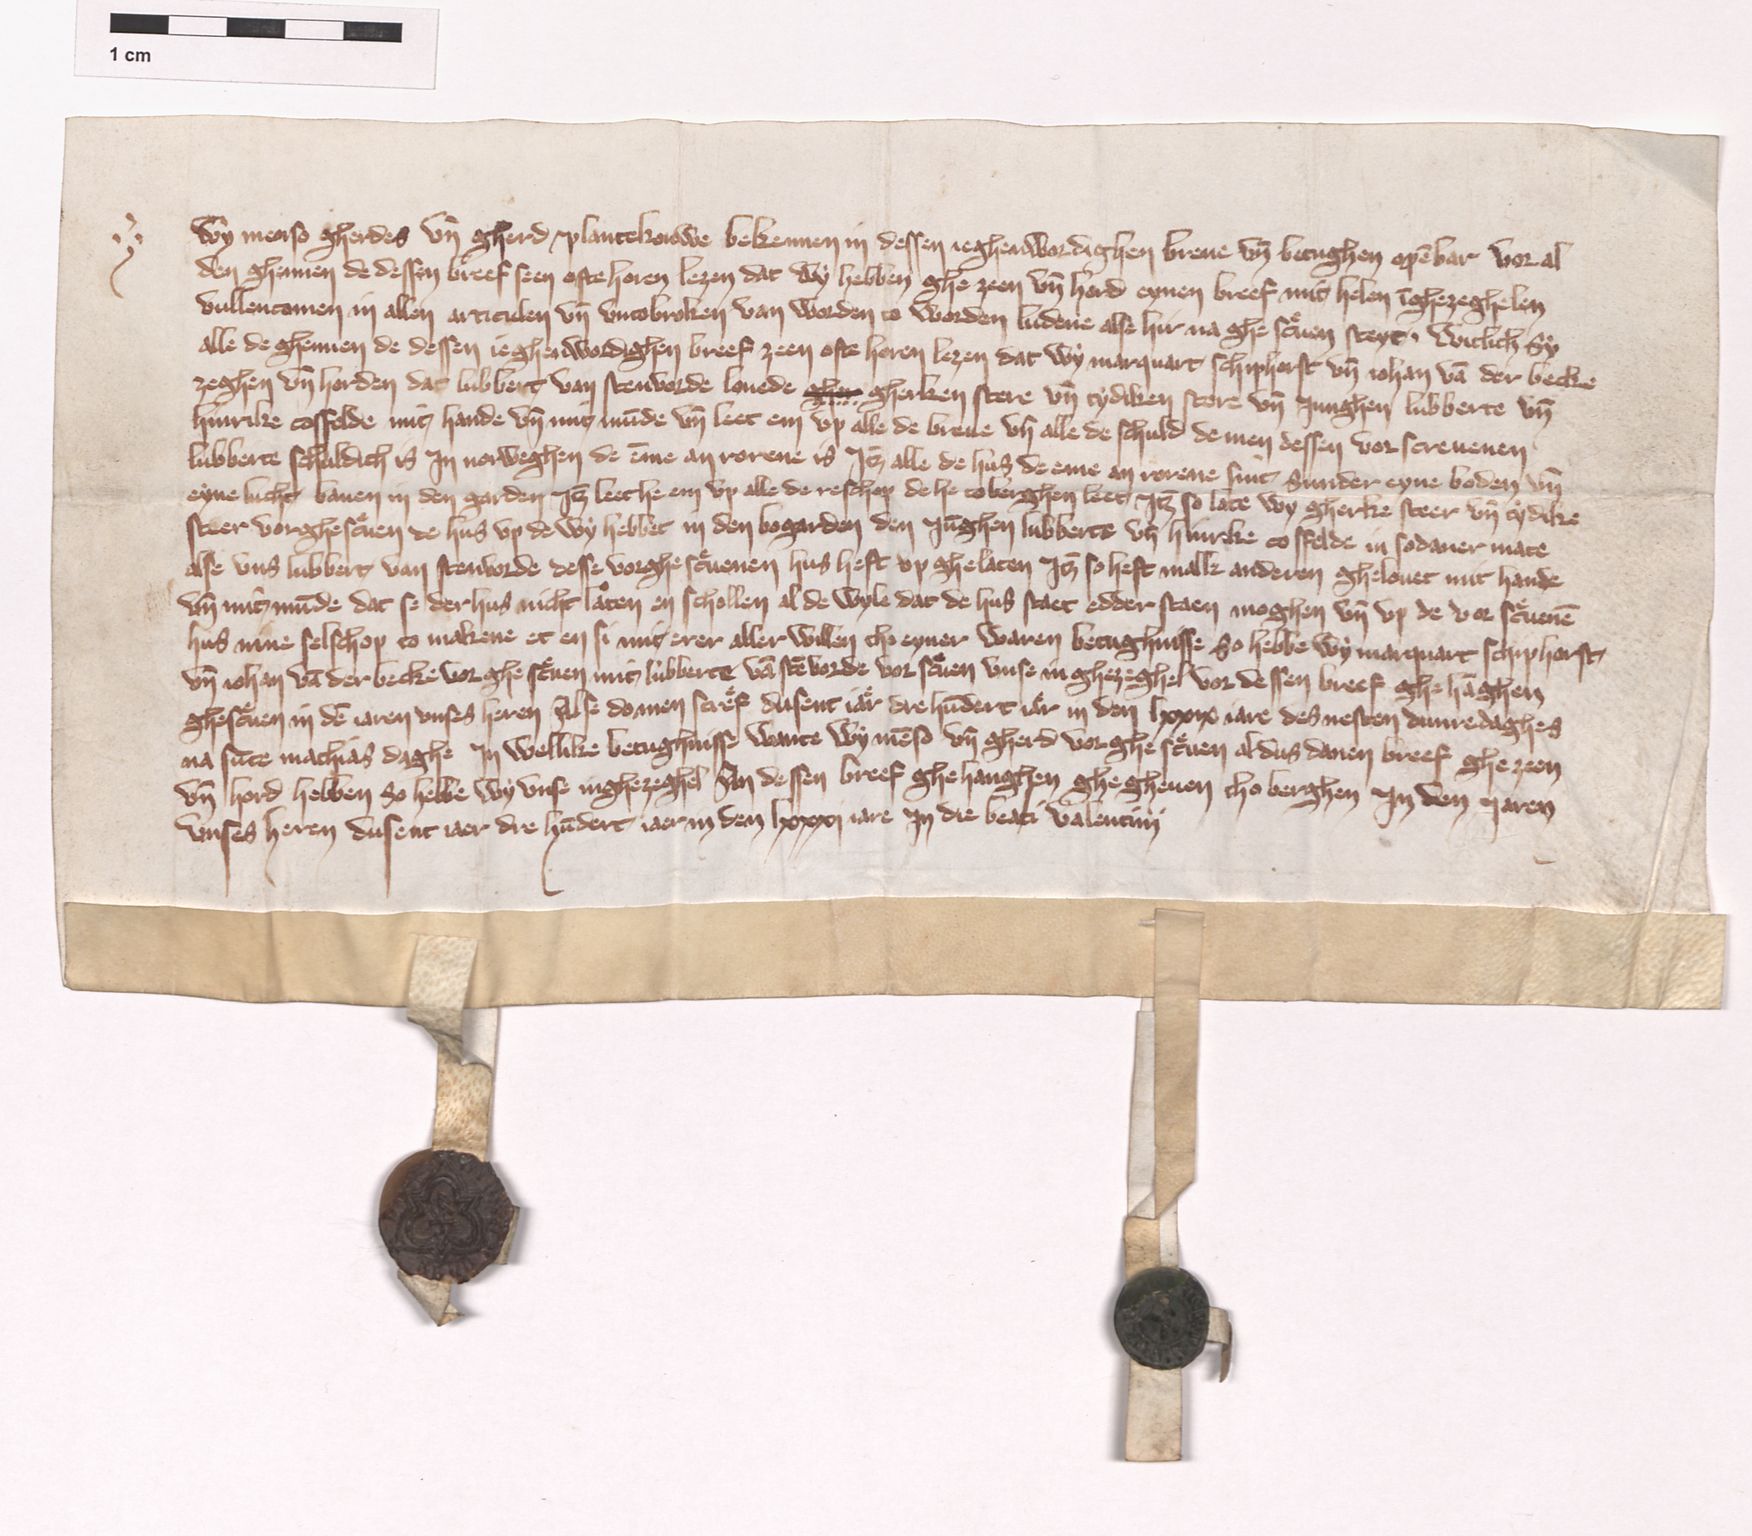 1 cm
Wy menso gherdes vn̄ gherd plantekouwe bekennen in dessen ieghenwordighen breue vn̄ betughen opēbar vor al
den ghennen de dessen breef seen ofte horen lezen dat wy hebben ghe zeen vn̄ hord eynen breef mit helen īghezeghelen
vullencomen in allen articulen vn̄ vntobroken van worden to worden ludene alse hir na ghe scͤuen steyt. witlich sy
alle de ghennen de dessen ieghenwordighen breef zeen ofte horen lezen dat wy marquart schiphorst vn̄ iohan vā der becke
zeghen vn̄ horden dat lubbert van stenvorde louede gher gherken stere vn̄ tydiken stere vn̄ Junghen lubberte vn̄
hinrike cosfelde mit hande vn̄ mit mūde vn̄ leet em vp alle de breue vn̄ alle de schuld de men dessen vor screuenen
lubberte schuldich is Jn norweghen de ēme an rorene is Jtē alle de hus de eme an rorene sint sunder eyne boden vn̄
eyne lucht bauen in den garden Jtē leet he em vp alle de reschop de he to berghen leet Jtē so late wy gherke steer vn̄ tydike
steer vorghescͤuen de hus vp de wy hebbet in den bogarden den Jūghen lubberte vn̄ hinrike cosfelde in sodaner mate
alse vns lubbert van stenvorde desse vorghe scͤuenen hus heft vp ghelaten Jtē so heft malk anderen ghelouet mit hande
vn̄ mit mūde dat se der hus nicht laten en schollen al de wyle dat de hus staet edder staen moghen vn̄ vp de vor scͤuenē
hus nine selschop to makene et en si mit erer aller willen tho eyner waren betughnisse So hebbe wy marquart schiphorst
vn̄ iohan vā der becke vor ghe scͤuen mit lubberte vā stēvorde vor scͤuen vnse in ghezeghel vor dessen breef ghe hāghen
ghescͤuen in dē iaren vnses heren Alse do men screͤf dusent iaͤr drehūdert iaͤr in den lxxix iare des nesten dunredaghes
na sūte mathias daghe Jn welkike betughnisse wante wy mēso vn̄ gherd vorghe scͤuen al dus danen breef ghe zeen
vn̄ hord hebben So hebbe wy vnse inghezeghel An dessen breef ghe hanghen ghe gheuen tho berghen Jn den Jaren
vnses heren dusent iaer dre hūdert iaer in den lxxxi iare Jn die beati valentini